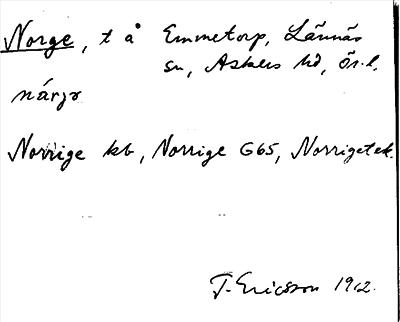 Norge, t å Emmetorp, Lännäs
sn, Askers hd, Ör.l.
nárjə
Norrige kb, Norrige G65, Norrigetek.
T. Ericsson 1912.